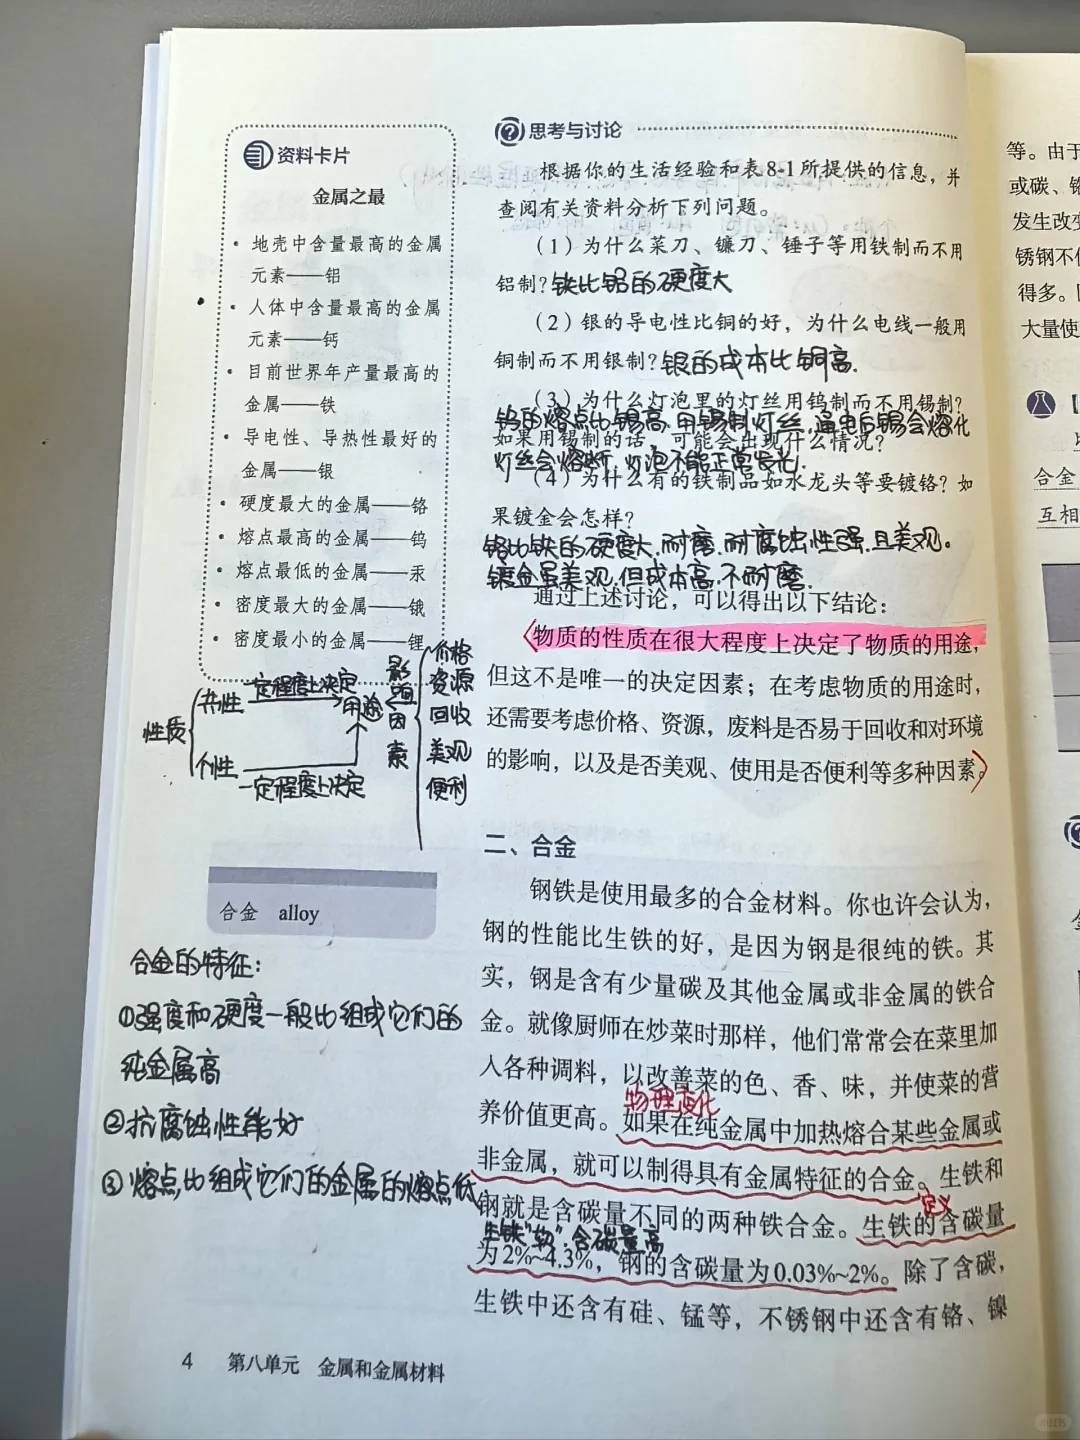 资料卡片
金属之最
• 地壳中含量最高的金属
元素——铝
• 人体中含量最高的金属
元素——钙
• 目前世界年产量最高的
金属——铁
• 导电性、导热性最好的
金属——银
• 硬度最大的金属——铬
• 熔点最高的金属——钨
• 熔点最低的金属——汞
• 密度最大的金属——锇
• 密度最小的金属——锂
性质
共性
一定程度上决定
个性
一定程度上决定
用途
影响因素
价格
资源
回收
美观
便利
合金 alloy
合金的特征:
①强度和硬度一般比组成它们的
纯金属高
②抗腐蚀性能好
③熔点比组成它们的金属的熔点低
思考与讨论
根据你的生活经验和表8-1所提供的信息，并
查阅有关资料分析下列问题。
（1）为什么菜刀、镰刀、锤子等用铁制而不用
铝制？铁比铝的硬度大
（2）银的导电性比铜的好，为什么电线一般用
铜制而不用银制？银的成本比铜高.
（3）为什么灯泡里的灯丝用钨制而不用锡制？
钨的熔点比锡高.用锡制灯丝,通电后锡会熔化
如果用锡制的话，可能会出现什么情况？
灯丝会熔断,灯泡不能正常发光.
（4）为什么有的铁制品如水龙头等要镀铬？如
果镀金会怎样？
铬比铁的硬度大.耐磨.耐腐蚀性强.且美观。
镀金虽美观,但成本高.不耐磨.
通过上述讨论，可以得出以下结论：
物质的性质在很大程度上决定了物质的用途，
但这不是唯一的决定因素；在考虑物质的用途时，
还需要考虑价格、资源，废料是否易于回收和对环境
的影响，以及是否美观、使用是否便利等多种因素。
二、合金
钢铁是使用最多的合金材料。你也许会认为，
钢的性能比生铁的好，是因为钢是很纯的铁。其
实，钢是含有少量碳及其他金属或非金属的铁合
金。就像厨师在炒菜时那样，他们常常会在菜里加
入各种调料，以改善菜的色、香、味，并使菜的营
物理变化
养价值更高。如果在纯金属中加热熔合某些金属或
非金属，就可以制得具有金属特征的合金。生铁和
定义
钢就是含碳量不同的两种铁合金。生铁的含碳量
生铁"软".含碳量高
为2%~4.3%，钢的含碳量为0.03%~2%。除了含碳，
生铁中还含有硅、锰等，不锈钢中还含有铬、镍
4 第八单元 金属和金属材料
等。由于
或碳、铬
发生改变
锈钢不仅
得多。
大量使
合金
互相